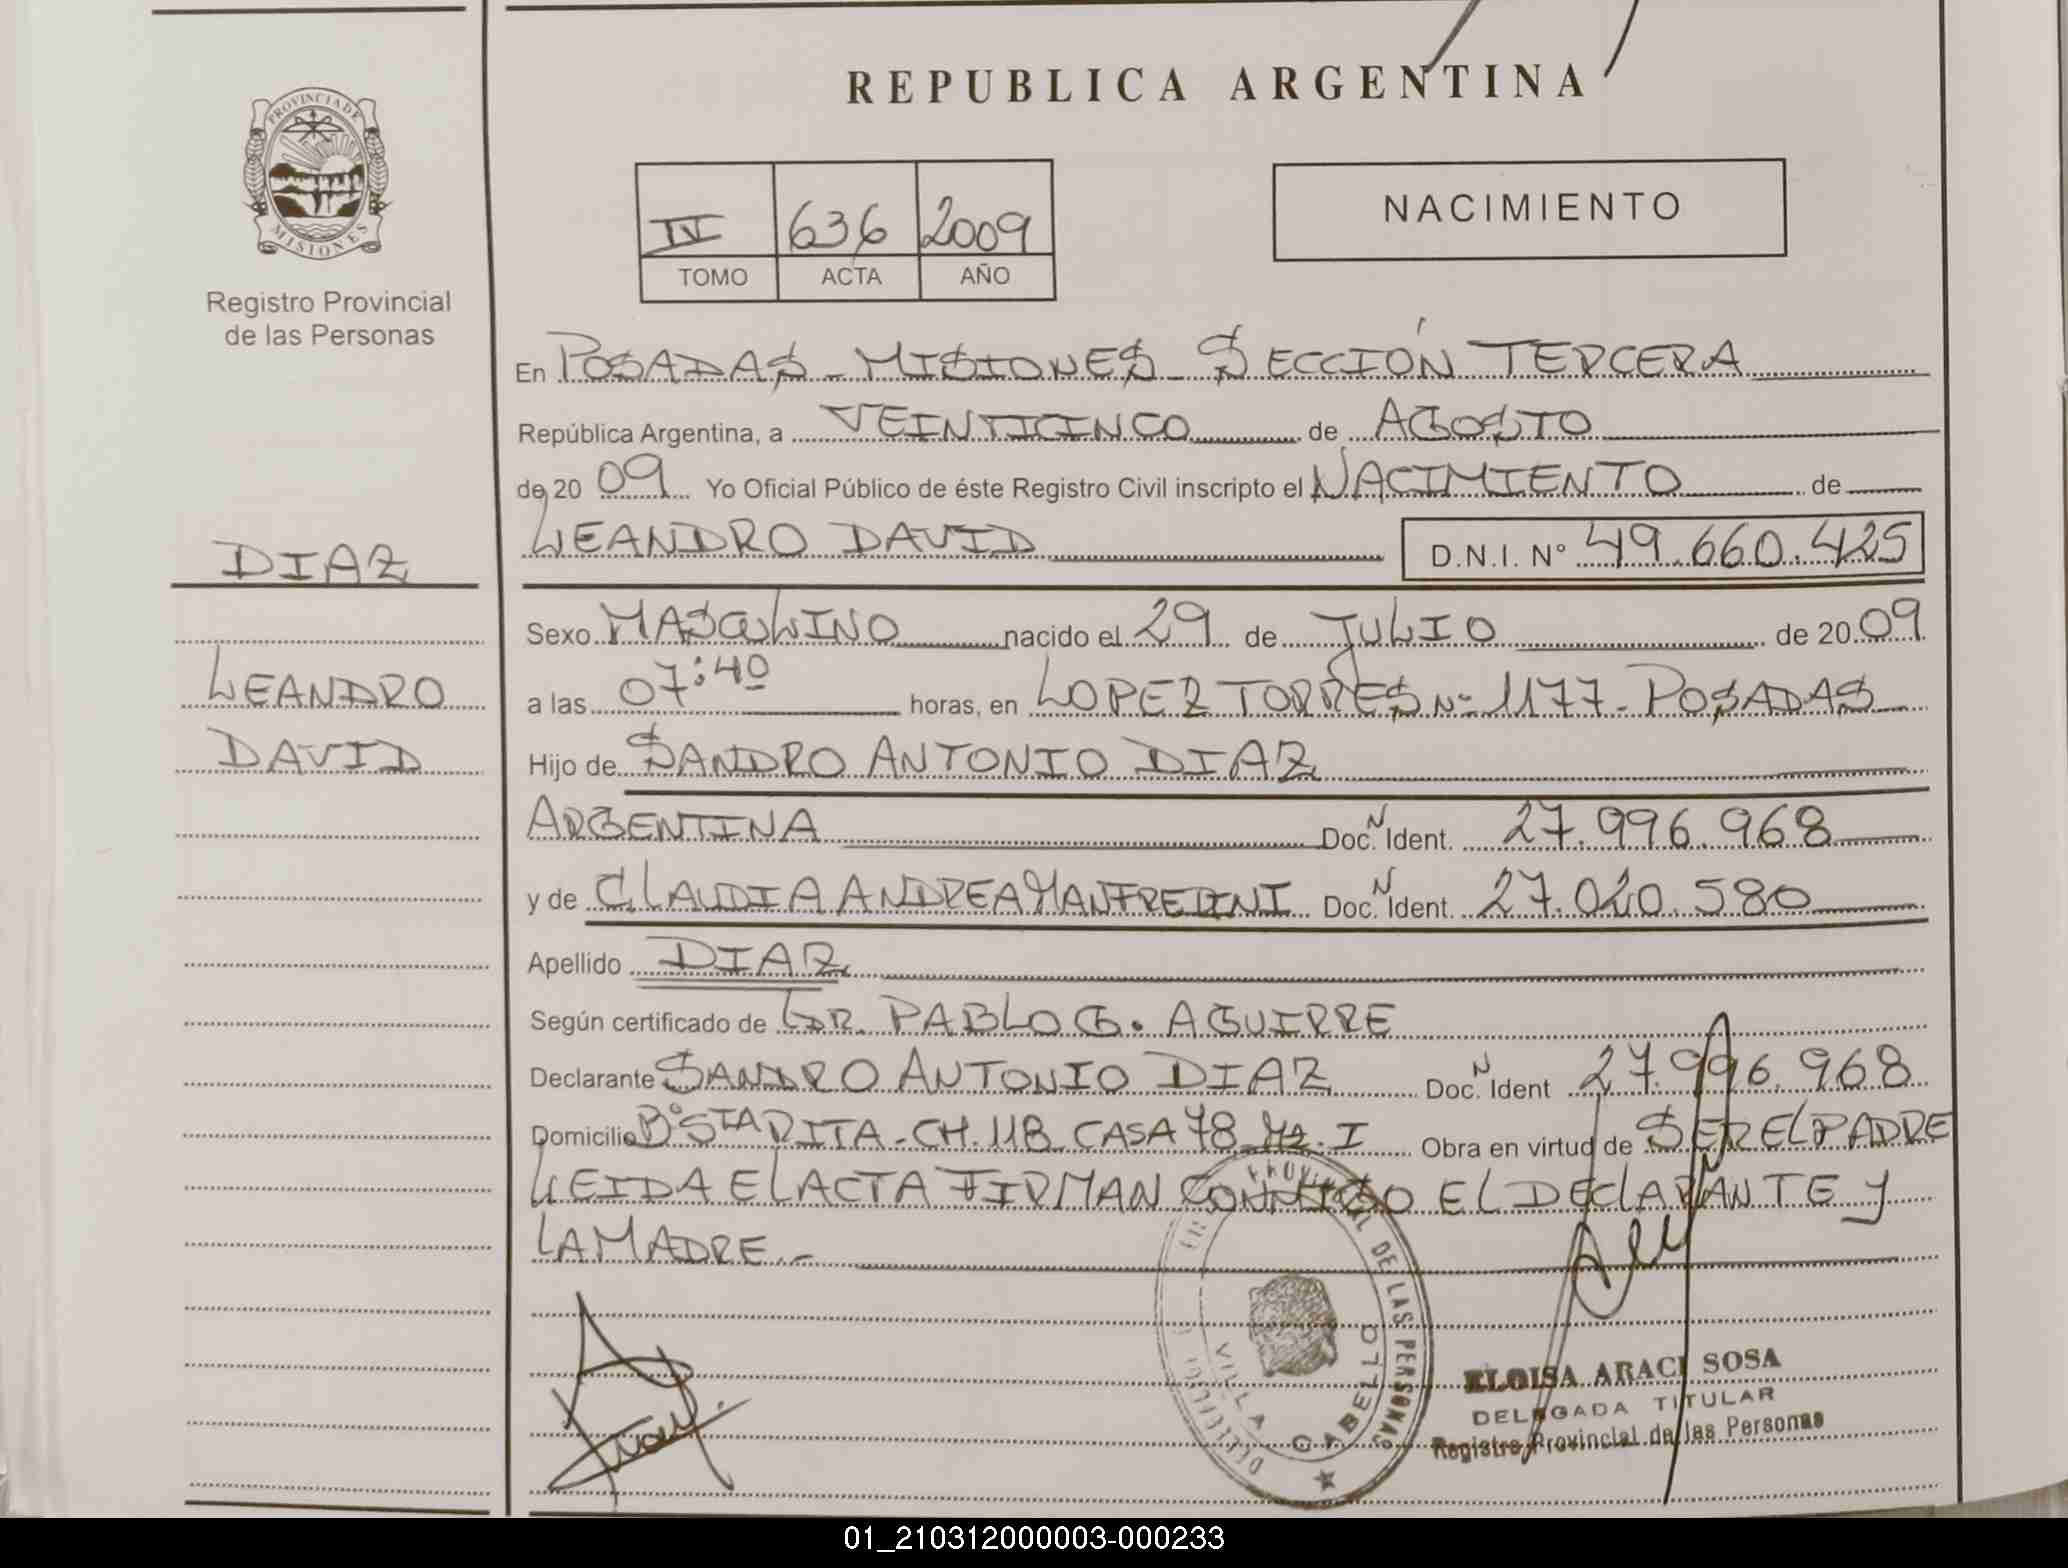 REPUBLICA ARGENTINA
PROVINCIA DE
MISIONES
Registro Provincial
de las Personas
IV 636 2009
TOMO ACTA AÑO
NACIMIENTO
En POSADAS - MISIONES - SECCIÓN TERCERA
República Argentina, a VEINTICINCO de AGOSTO
de 20 09 Yo Oficial Público de éste Registro Civil inscripto el NACIMIENTO de
DIAZ
LEANDRO DAVID D.N.I. N° 49.660.425
Sexo MASCULINO nacido el 29 de JULIO de 20 09
LEANDRO
a las 07:40 horas, en LOPEZ TORRES Nº 1177 - POSADAS
DAVID
Hijo de SANDRO ANTONIO DIAZ
ARGENTINA Doc. N Ident. 27.996.968
y de CLAUDIA ANDREA MANFREDINI Doc. N Ident. 27.020.580
Apellido DIAZ
Según certificado de DR. PABLO G. AGUIRRE
Declarante SANDRO ANTONIO DIAZ Doc. N Ident 27.996.968
Domicilio Bº STA RITA - CH. 118 CASA 78 MZ. I Obra en virtud de SER EL PADRE
LEIDA EL ACTA FIRMAN CONMIGO EL DECLARANTE Y
LA MADRE.-
DE LAS PERSONAS
VILLA CABELLO
ELOISA ARACI SOSA
DELEGADA TITULAR
Registro Provincial de las Personas
01_210312000003-000233